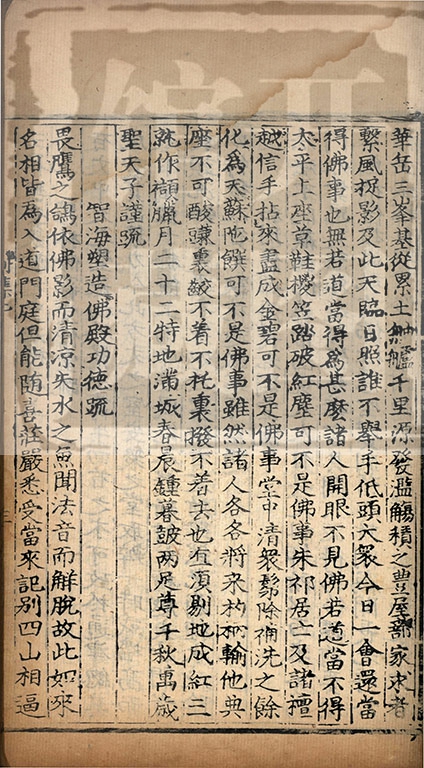 華岳三峯基從累土舳艫千里源發濫觴積之豊屋蔀家求者
繫風捉影及此天臨日照誰不舉手低頭大衆今日一會還當
得佛事也無若道當得爲甚麽諸人開眼不見佛若道當不得
太平上座草鞋㮶笠踏破紅塵可不是佛事朱祁居士及諸檀
越信手拈來盡成金碧可不是佛事堂中清衆䰂除補洗之餘
化為天蘇陁饌可不是佛事雖然諸人各各將来杓柄輸他典
座不可酸䭕裏皷不着不托裏撥不着去也直須剔地成紅三
就作襭臘月二十二特地滿城春晨鍾暮皷两足尊千秋萬歲
聖天子謹疏
智海塑造佛殿功德疏
畏鷹之鴿依佛影而清凉失水之魚聞法音而解脫故此如來
名相皆為入道門庭但能随喜莊嚴悉受當來記别四山相逼